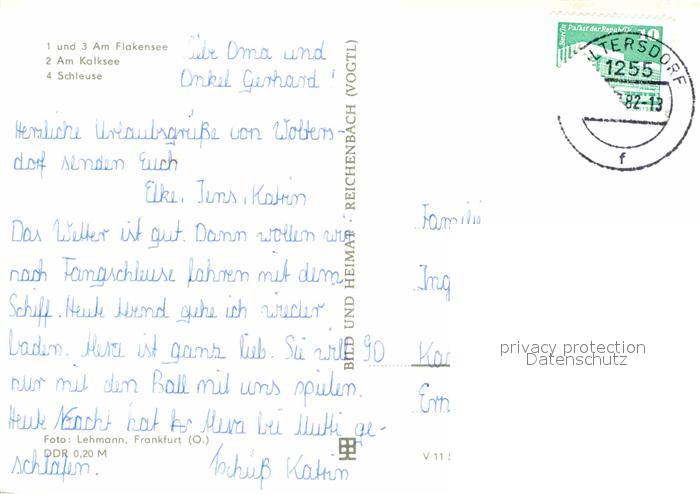 1 und 3 Am Flakensee
2 Am Kalksee
4 Schleuse
Liebe Oma und
Onkel Gerhard!
Herzliche Urlaubsgrüße von Wolters-
dorf senden Euch
Elke, Jens, Katrin
Das Wetter ist gut. Dann wollen wir
nach Fangschleuse fahren mit dem
Schiff. Heute Abend gehe ich wieder
baden. Hexa ist ganz lieb. Sie will
nur mit dem Ball mit uns spielen.
Heute Nacht hat Hexa bei Mutti ge-
schlafen. Tschüß Katrin
Foto: Lehmann, Frankfurt (O.)
DDR 0,20 M
BILD UND HEIMAT · REICHENBACH (VOGTL)
V 11
Berlin Palast der Republik
10
LTERSDORF
1255
82-13
f
Famili
Ing
90
Ka
Ern
privacy protection
Datenschutz